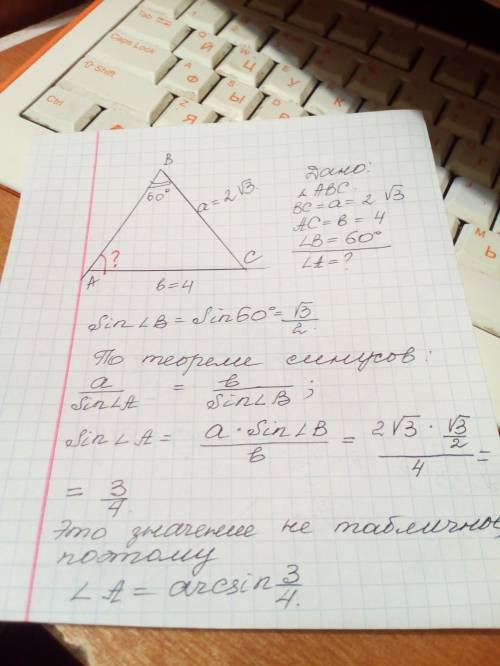 Tab
Caps Lock
Shift
Ctrl
B
60°
a = 2√3
?
A
C
в = 4
Дано:
∠ABC.
BC = a = 2√3
AC = в = 4
∠B = 60°
∠A = ?
Sin∠B = Sin60° = √3/2.
По теореме синусов:
a/Sin∠A = в/Sin∠B;
Sin∠A = a·Sin∠B/в = 2√3·√3/2/4 =
= 3/4.
Это значение не табличное,
поэтому
∠A = arcsin 3/4.